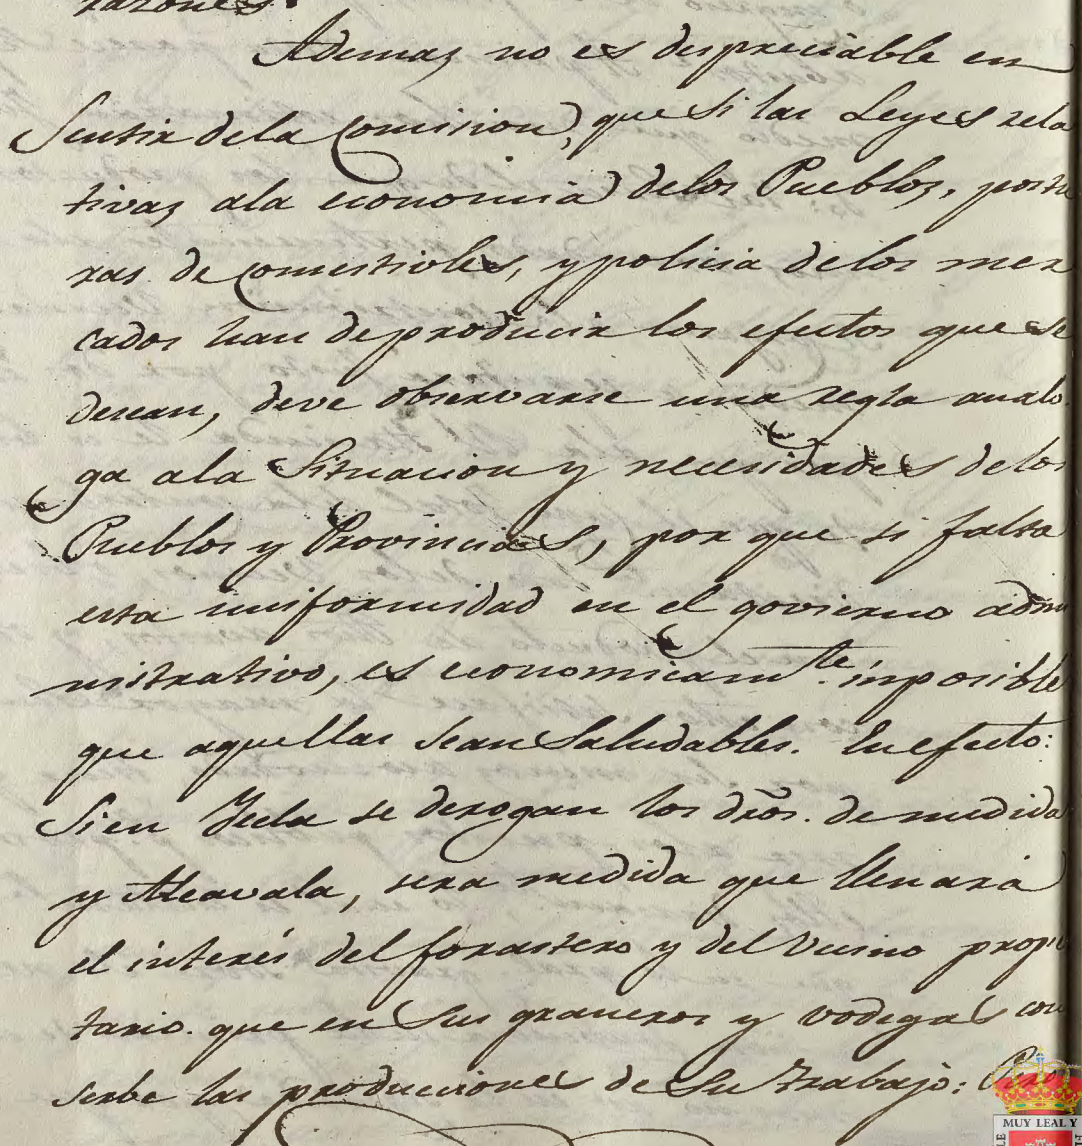 razones.
Ademas no es despreciable en
Sentir dela Comision, que si las Leyes rela
tivas ala economia delos Pueblos, postu
ras de comestibles, y policia delos mer
cados han deproducir los efectos que se
desean, deve observarse una regla analo
ga ala Situacion y necesidades delos
Pueblos y Provincias, por que si falta
esta uniformidad en el govierno admi
nistrativo, es economicamte. inposible
que aquellas sean Saludables. En efecto:
Si en Yecla se derogan los dr̃os. de medida
y Alcavala, sera medida que llenará
el interés del forastero y del Vecino propie
tario. que en Sus graneros y vodegas con
serbe las producciones de Su trabajo:
MUY LEAL Y